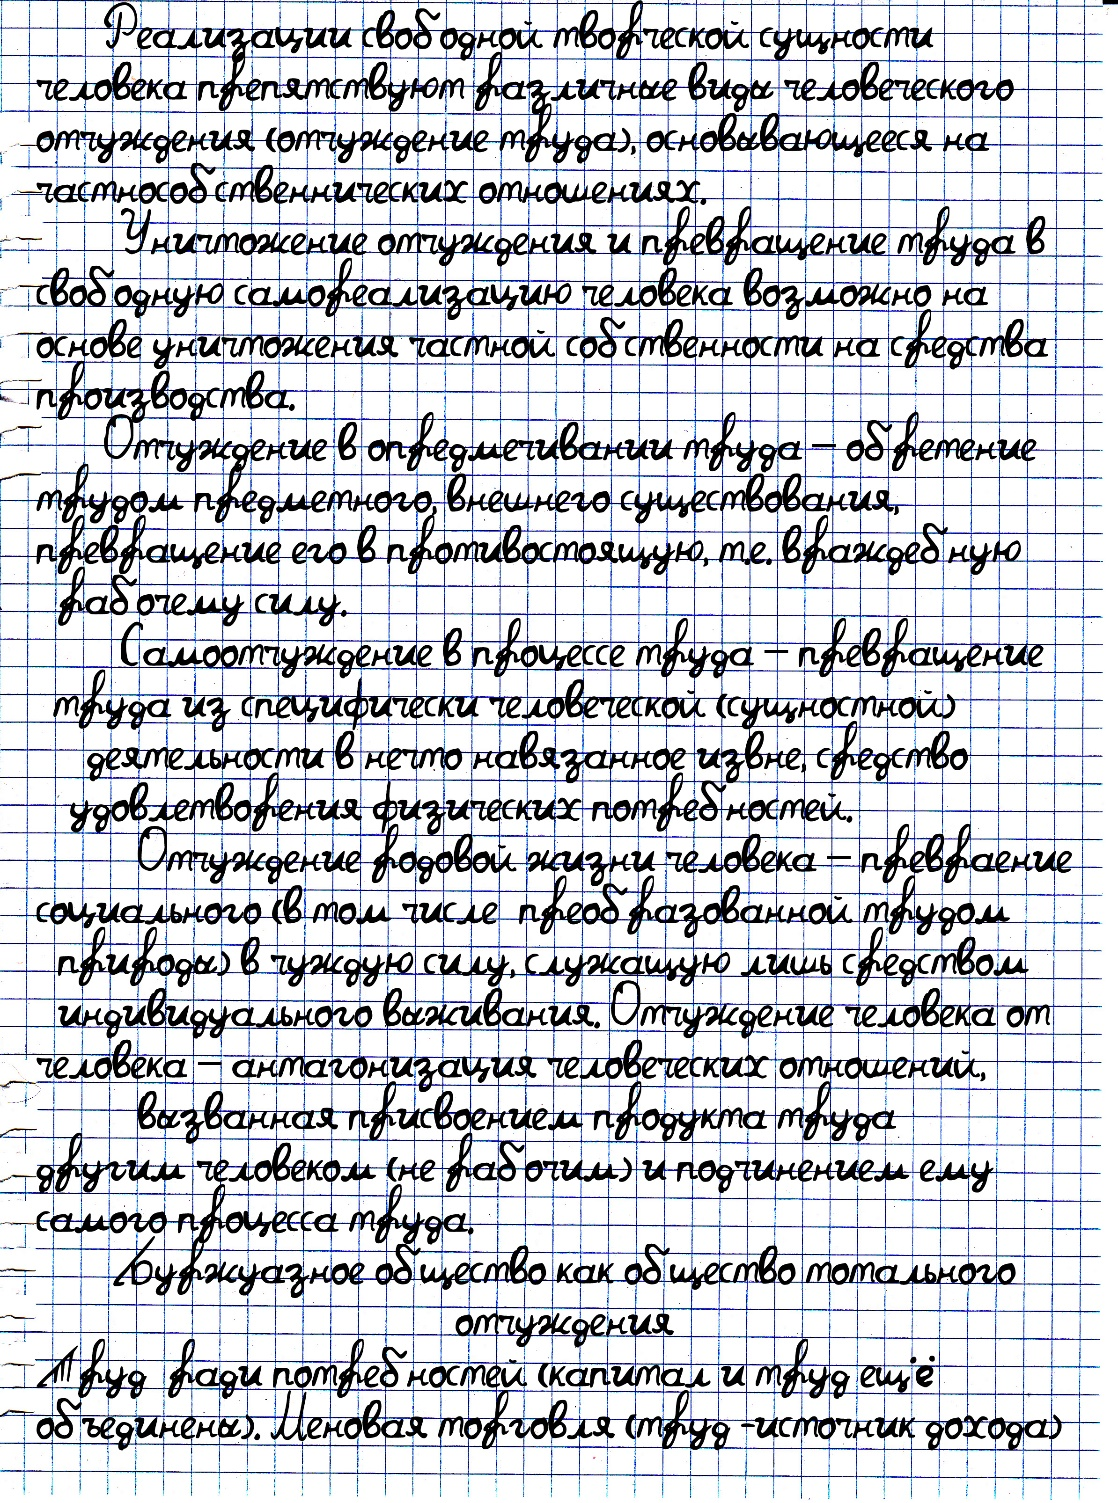 Реализации свободной творческой сущности
человека препятствуют различные виды человеческого
отчуждения (отчуждение труда), основывающееся на
частнособственнических отношениях.
Уничтожение отчуждения и превращение труда в
свободную самореализацию человека возможно на
основе уничтожения частной собственности на средства
производства.
Отчуждение в опредмечивании труда – обретение
трудом предметного, внешнего существования,
превращение его в противостоящую, т.е. враждебную
рабочему силу.
Самоотчуждение в процессе труда – превращение
труда из специфически человеческой (сущностной)
деятельности в нечто навязанное извне, средство
удовлетворения физических потребностей.
Отчуждение родовой жизни человека – превраение
социального (в том числе преобразованной трудом
природы) в чуждую силу, служащую лишь средством
индивидуального выживания. Отчуждение человека от
человека – антагонизация человеческих отношений,
вызванная присвоением продукта труда
другим человеком (не рабочим) и подчинением ему
самого процесса труда.
Буржуазное общество как общество тотального
отчуждения
Труд ради потребностей (капитал и труд ещё
объединены). Меновая торговля (труд -источник дохода)